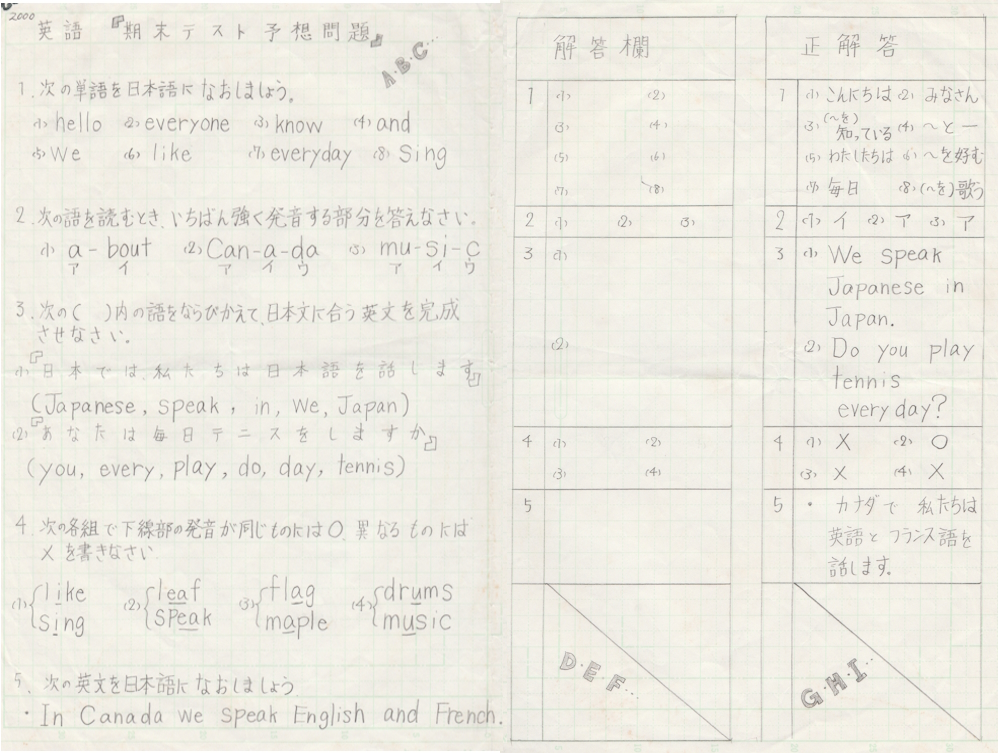 2000
英語 『期末テスト予想問題』
A・B・C…
1. 次の単語を日本語になおしましょう。
(1) hello (2) everyone (3) know (4) and
(5) We (6) like (7) everyday (8) Sing
2. 次の語を読むとき、いちばん強く発音する部分を答えなさい。
(1) a-bout (2) Can-a-da (3) mu-si-c
ア イ ア イ ウ ア イ ウ
3. 次の( )内の語をならびかえて、日本文に合う英文を完成
させなさい。
(1)『日本では、私たちは日本語を話します』
(Japanese, speak, in, We, Japan)
(2)『あなたは毎日テニスをしますか』
(you, every, play, do, day, tennis)
4. 次の各組で下線部の発音が同じものには○、異なるものには
×を書きなさい
(1) like (2) leaf (3) flag (4) drums
sing speak maple music
5. 次の英文を日本語になおしましょう
・In Canada we speak English and French.
解答欄
1 (1) (2)
(3) (4)
(5) (6)
(7) (8)
2 (1) (2) (3)
3 (1)
(2)
4 (1) (2)
(3) (4)
5
D・E・F…
正解答
1 (1) こんにちは (2) みなさん
(3) (〜を)知っている (4) 〜と一
(5) わたしたちは (6) 〜を好む
(7) 毎日 (8) (〜を)歌う
2 (1) イ (2) ア (3) ア
3 (1) We speak
Japanese in
Japan.
(2) Do you play
tennis
every day?
4 (1) × (2) ○
(3) × (4) ×
5 ・カナダで 私たちは
英語と フランス語を
話します。
G・H・I…